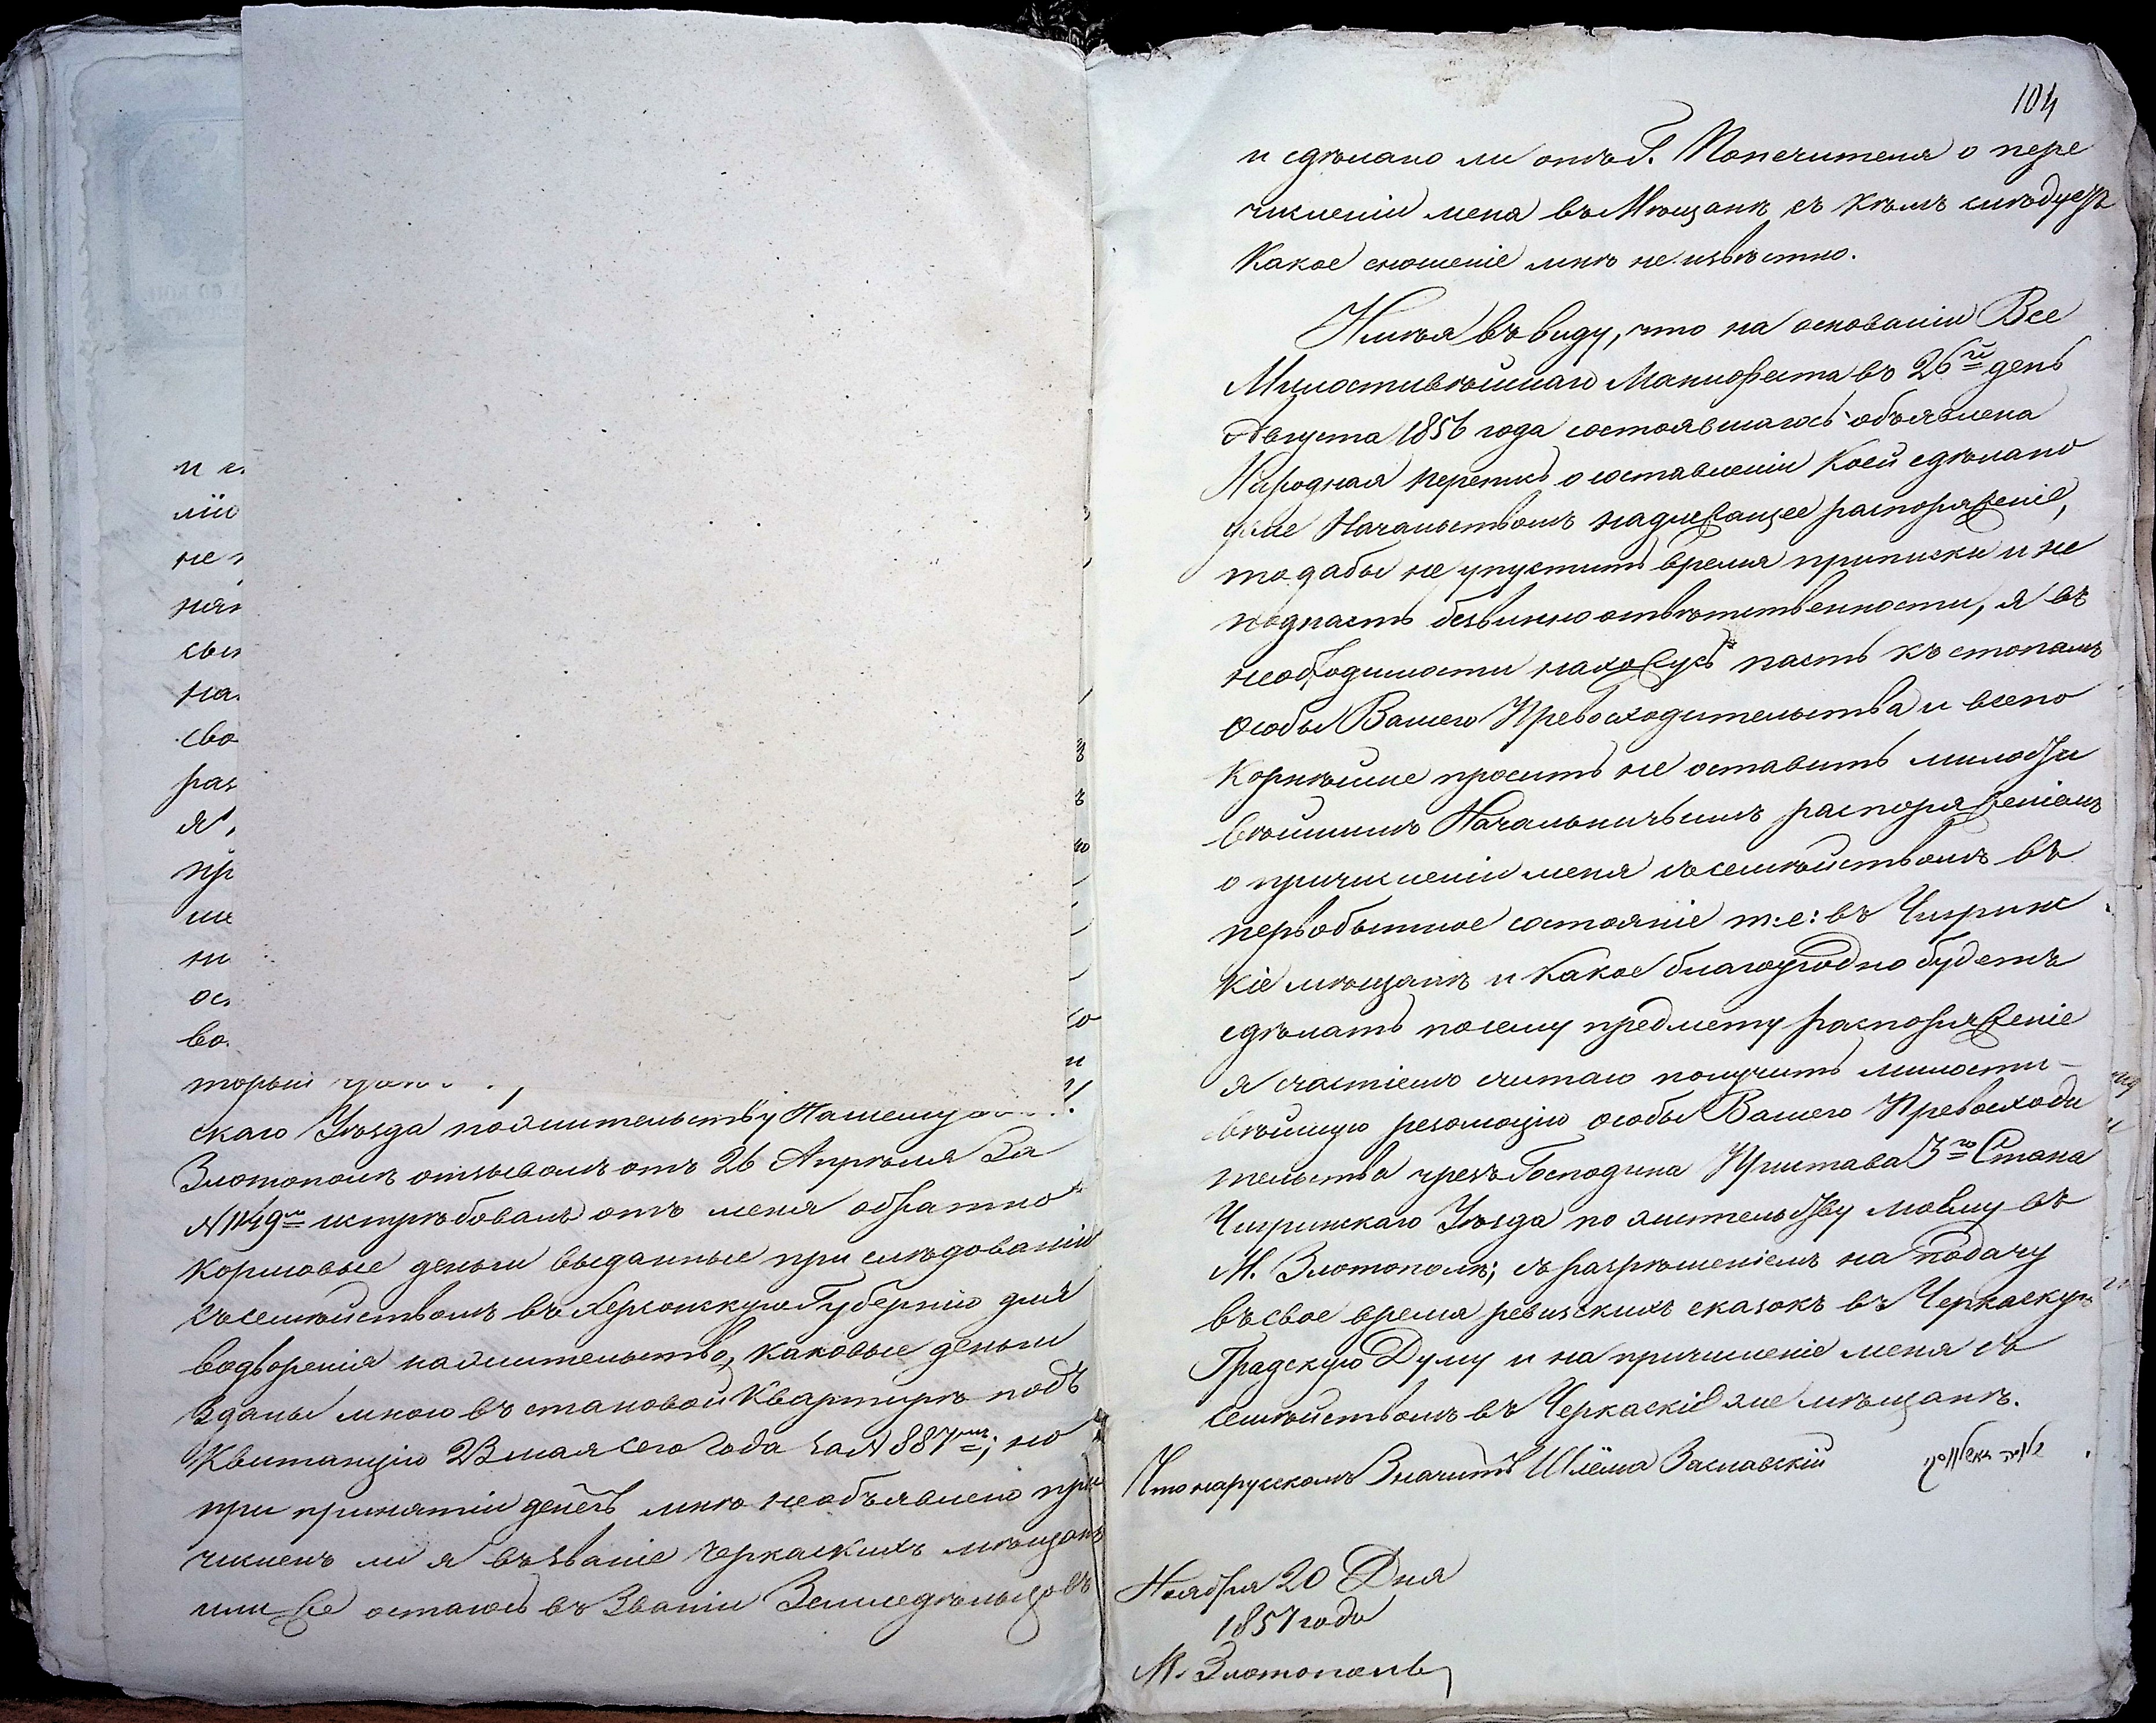 и с
лію
не
нян
сын
на
сво
раз
я,
пр
ше
ни
ос
во
торый
скаго Уѣзда по жительству Нашему
Златополѣ отзывомъ отъ 26 Апрѣля За
№ 1149м истребовалъ отъ меня обратно
кормовые деньги выданные при слѣдованіи
съ семѣйствомъ въ Херсонскую Губернію для
водворенія на жительство, каковые деньги
Зданы мною въ становой Квартирѣ подъ
Квитанцію 23 мая сего Года за № 887мъ; но
при принятіи денегъ мнѣ не объявлено при
численъ ли я въ званіе черкаскихъ мѣщанъ
или же остаюсь въ Званіи Земледѣльцовъ
104
и сдѣлано ли отъ Г. Попечителя о пере
численіи меня въ Мѣщанѣ, съ кѣмъ слѣдуетъ
Какое сношеніе мнѣ не извѣстно.
Имѣя въ виду, что на основаніи Все
Милостивѣйшаго Манифеста въ 26й день
Августа 1856 года состоявшагось объявлена
Народная перепись о составленіи коей сдѣлано
уже Начальствомъ надлежащее распоряженіе,
то дабы не упустить время приписки и не
подпасть безвинно отвѣтственности, я въ
необходимости нахожусь пасть къ стопамъ
Особы Вашего Превосходительства и всепо
корнѣйше просить не оставить милости
вѣйшимъ Начальничьимъ распоряженіемъ
о причисленіи меня съ семѣйствомъ въ
первобытное состояніе т:е: въ Чигрин
кіе мѣщанѣ и какое благоугодно будетъ
сдѣлать по сему предмету распоряженіе
я счастіемъ считаю получить милости-
вѣйшую резолюцію особы Вашего Превосходи
тельства чрезъ Господина Пристава 3го Стана
Чигринскаго Уѣзда по жительству моему въ
М. Златополѣ; съ разрѣшеніемъ на подачу
въ свое время ревизскихъ сказокъ въ Черкаскую
Градскую Думу и на причисленіе меня съ
семѣйствомъ въ Черкаскіе же мѣщанѣ.
Что на русскомъ Значитъ Шлёма Заславскій
Ноября 20 Дня
1857 года
М. Златополь